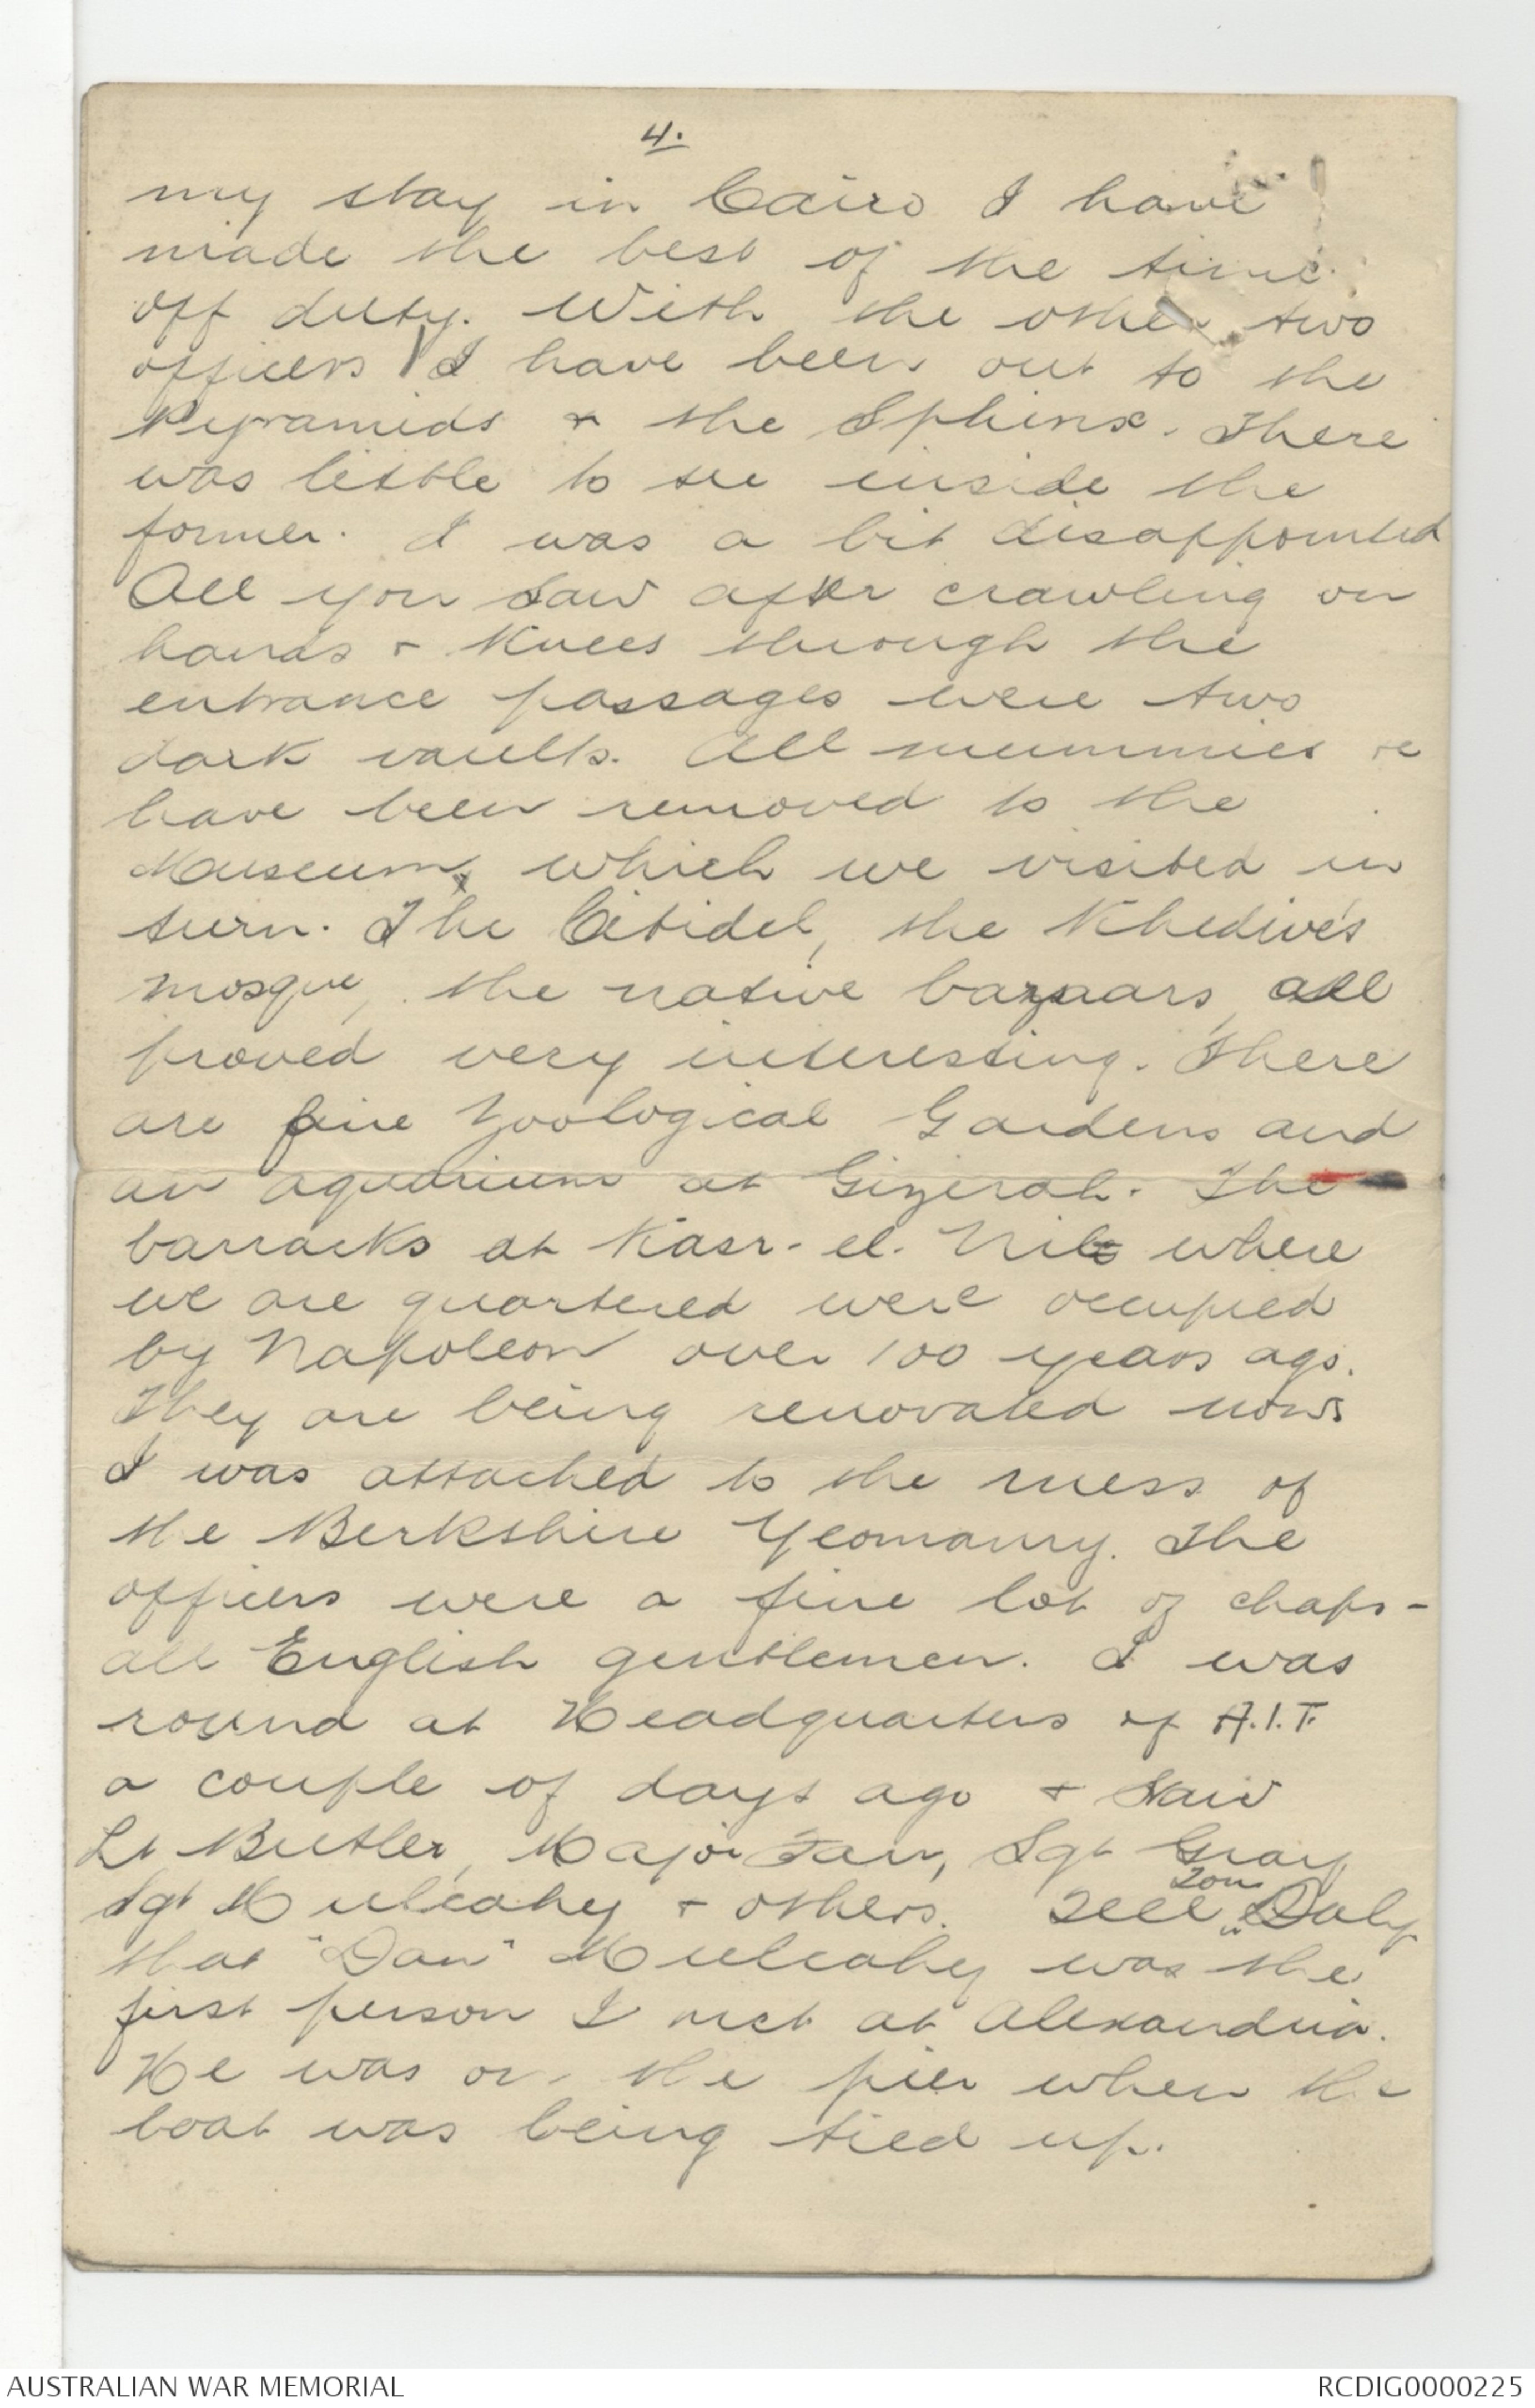 4.
my stay in Cairo I have
made the best of the time
off duty. With the other two
officers I have been out to the
Pyramids & the Sphinx. There
was little to see inside the
former. I was a bit disappointed
All you saw after crawling on
hands & knees through the
entrance passages were two
dark vaults. All mummies &c
have been removed to the
Museum, which we visited in
turn. The Citidel, the Khedive's
mosque, the native bazaars, all
proved very interesting. There
are fine Zoological Gardens and
an aquarium at Gizerah. The
barracks at Kasr-el-Nile where
we are quartered were occupied
by Napoleon over 100 years ago.
They are being renovated now.
I was attached to the mess of
the Berkshire Yeomanry. The
officers were a fine lot of chaps -
all English gentlemen. I was
round at Headquarters of A.I.F.
a couple of days ago & saw
Lt Butler, Major, Sgt Gray,
Sgt Mulcahy & others. Tell Tom Daly
that "Dan" Mulcahy was the
first person I met at Alexandria.
He was on the pier when the
boat was being tied up.
AUSTRALIAN WAR MEMORIAL
RCDIG0000225